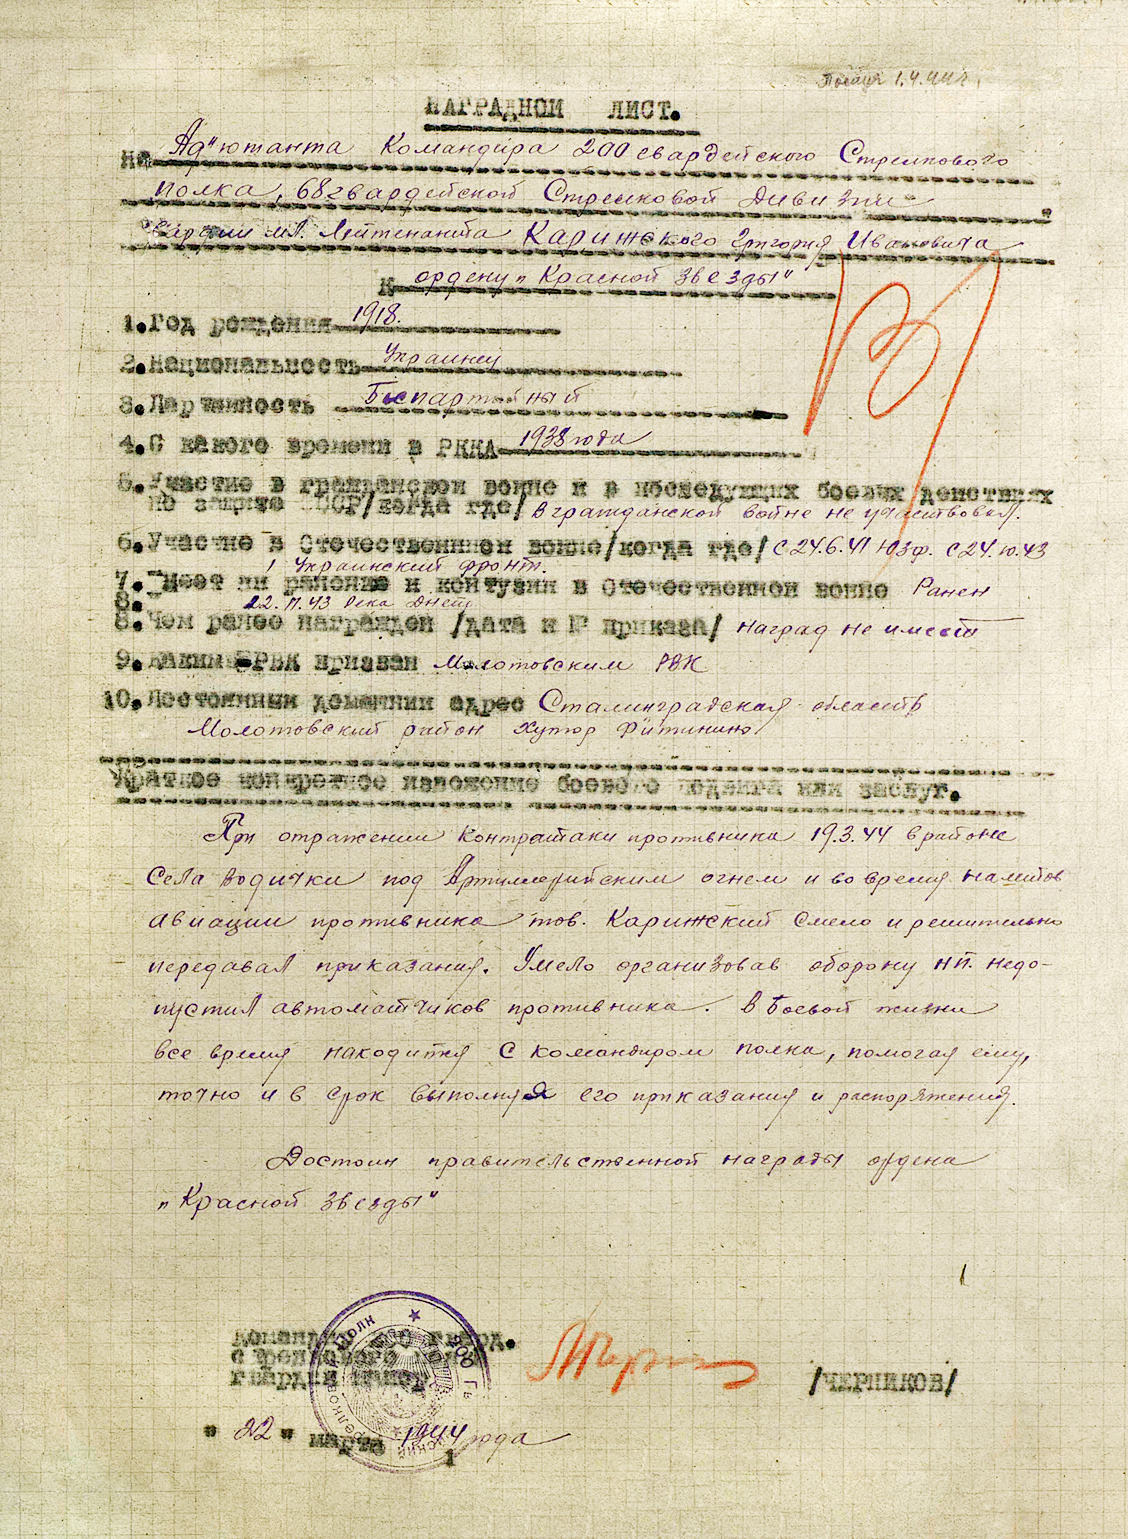 1.4.44 г.
НАГРАДНОЙ ЛИСТ.
на Ад"ютанта Командира 200 гвардейского Стрелкового
полка, 68 гвардейской Стрелковой Дивизии
гвардии мл. Лейтенанта Карижского Григория Ивановича
К ордену „Красной Звезды"
1. Год рождения 1918.
2. Национальность Украинец
3. Партийность Беспартийный
4. С какого времени в РККА 1938 года
5. Участие в гражданской войне и в последующих боевых действиях
по защите СССР/когда где/ в гражданской войне не участвовал.
6. Участие в Отечественной войне/когда где/ С 24.6.41 ЮЗФ. С 24.10.43
1 Украинский фронт.
7. Имеет ли ранения и контузии в Отечественной войне Ранен
8. 22.11.43 Река Днепр
8. Чем ранее награжден /дата и № приказа/ наград не имеет
9. Каким РВК призван Молотовским РВК
10. Постоянный домашний адрес Сталинградская область
Молотовский район Хутор Фитинино
Краткое конкретное изложение боевого подвига или заслуг.
При отражении контратаки противника 19.3.44 в районе
села Водички под Артиллерийским огнем и во время налетов
авиации противника тов. Карижский смело и решительно
передавал приказания. Умело организовав оборону НП. недо-
пустил автоматчиков противника. В Боевой жизни
все время находится с командиром полка, помогая ему,
точно и в срок выполняя его приказания и распоряжения.
Достоин правительственной награды ордена
„Красной Звезды"
Командир 200 гвард.
стрелкового полка
гвардии майор /ЧЕРНИКОВ/
" 22 " марта 1944 года
1